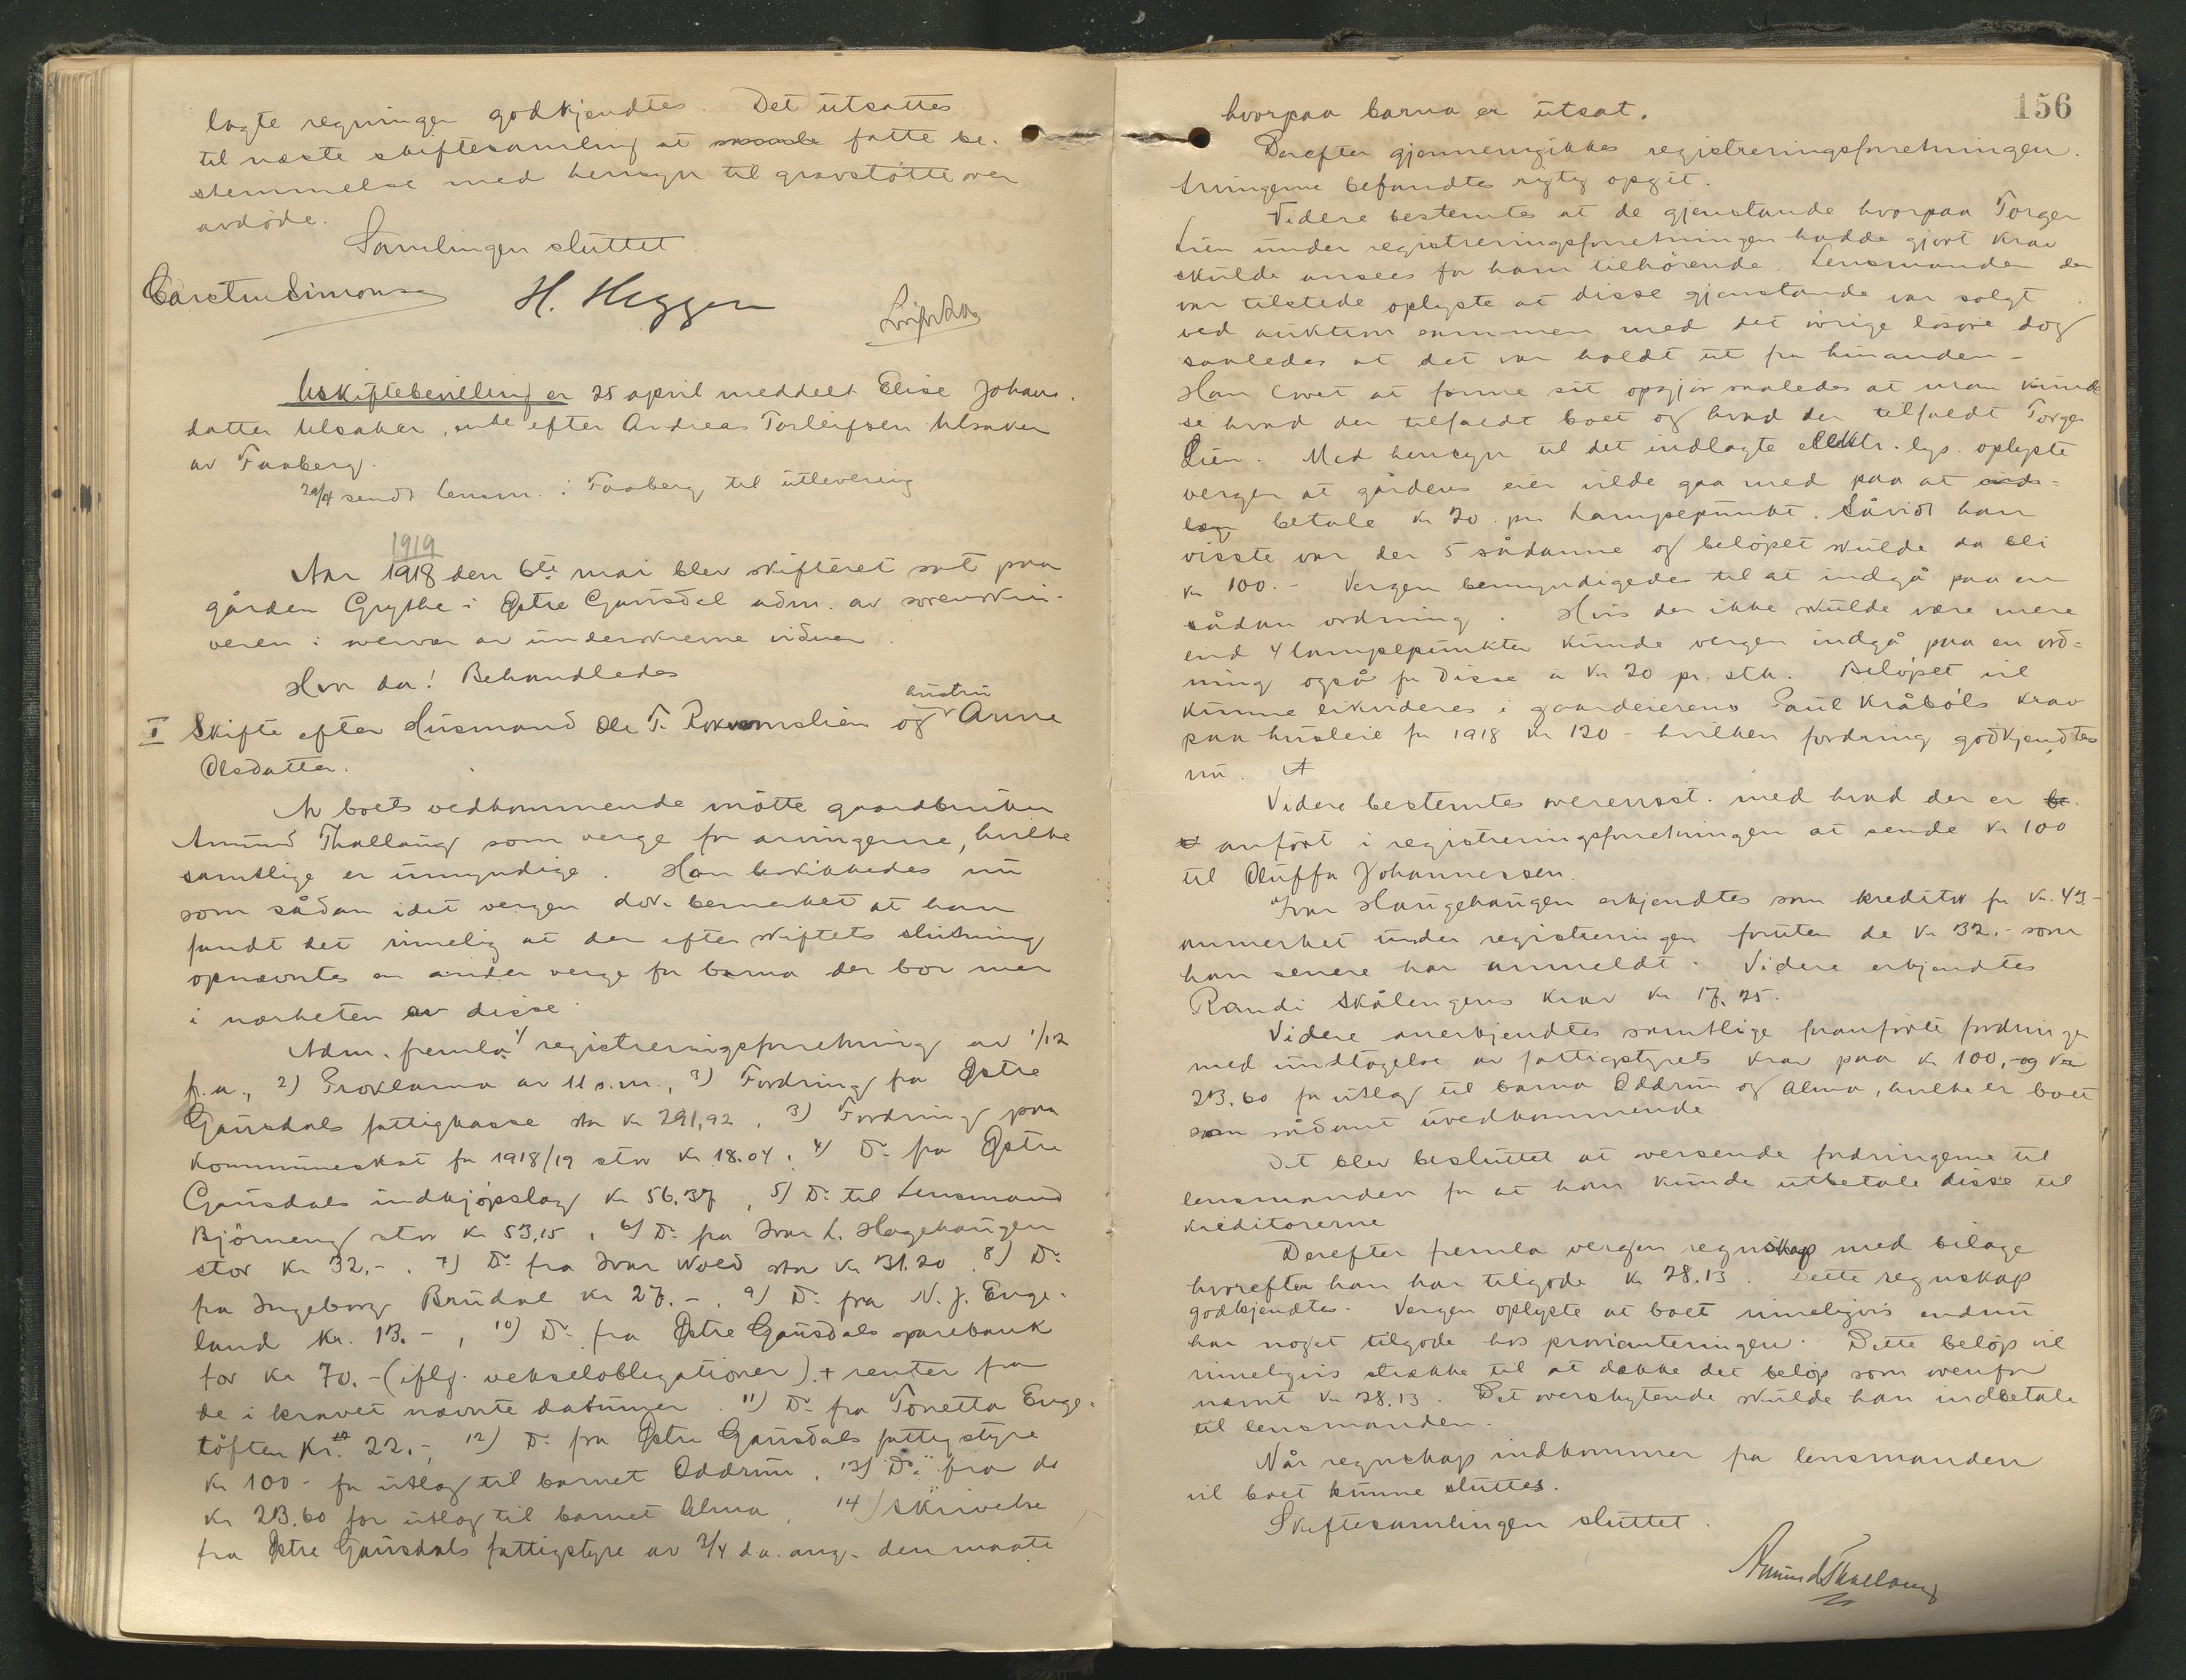 lagte regninger godkjendtes. Det utsattes
til næste skiftesamling at fatte be-
stemmelse med hensyn til gravstøtte over
avdøde.
Samlingen sluttet.
Carsten Simonsen H. Heggen
Uskiftebevilling er 25 april meddelt Elise Johans.
datter Ulsaker, enke efter Andreas Torleifsen Ulsaker
av Faaberg.
29/4 sendt Lensm. i Faaberg til utlevering
1919
Aar 1918 den 6te mai blev skifteret sat paa
gården Grythe i Østre Gausdal adm. av sorenskri-
veren i overvær av underskrevne vidner.
Hvor da! Behandledes
I Skifte efter Husmand Ole T. Rokvamslien og hustru Anne
Olsdatter.
Av boets vedkommende møtte gaardbruker
Amund Thallaug som verge for arvingerne, hvilke
samtlige er umyndige. Han beskikkedes nu
som sådan idet vergen dok bemerket at han
fandt det rimelig at der efter skiftets slutning
opnævntes en anden verge for barna der bor mer
i nærheten av disse.
Adm. fremla 1) registreringsforretning av 1/12
f.a., 2) Proklama av 11 s.m., 3) Fordring fra Østre
Gausdals fattigkasse stor kr 291,92, 3) Fordring paa
kommuneskat for 1918/19 stor kr 18.04, 4) Do fra Østre
Gausdals indkjøpslag kr 56.37, 5) Do til Lensmand
Bjørneng stor kr 53,15, 6) Do fra Ivar L. Hagehaugen
stor kr 32,-. 7) Do fra Ivar Wold stor kr 31.20. 8) Do
fra Ingeborg Brudal kr 27.-. 9) Do fra N. J. Enge-
land kr. 13.-, 10) Do fra Østre Gausdals sparebank
for kr 70.- (iflg. vekselobligationer) + renter fra
de i kravet nævnte datumer. 11) Do fra Tonetta Enge-
tøften kr. 22.-, 12) Do fra Østre Gausdals fattigstyre
kr 100- for utlæg til barnet Oddrun, 13) Do fra do
kr 23.60 for utlæg til barnet Alma, 14) skrivelse
fra Østre Gausdals fattigstyre av 3/4 d.a. ang. den maate
156
hvorpaa barna er utsat.
Derefter gjennemgikkes registreringsforretningen.
Arvingerne befandtes rigtig opgit.
Videre bestemtes at de gjenstande hvorpaa Torger
Lien under registreringsforretningen hadde gjort krav
skulde ansees for ham tilhørende. Lensmanden der
var tilstede oplyste at disse gjenstande var solgt
ved auktion sammen med det øvrige løsøre dog
saaledes at det var holdt ut fra hinanden -
Han lovet at forme sit opgjør saaledes at man kunde
se hvad der tilfaldt boet og hvad der tilfaldt Torger
Lien. Med hensyn til det indlagte elektr. lys oplyste
vergen at gårdens eier vilde gaa med paa at ind-
læg betale kr 20 pr Lampepunkt. Såvidt han
visste var der 5 sådanne og beløpet skulde da bli
kr 100.- Vergen bemyndigedes til at indgå paa en
sådan ordning. Hvis der ikke skulde være mere
end 4 lampepunkter kunde vergen indgå paa en ord-
ning også for disse a kr 20 pr. stk. Beløpet vil
kunne likvideres i gaardeierens Paul Kråbøls krav
paa husleie for 1918 kr 120- hvilken fordring godkjendtes
nu.
Videre bestemtes overensst. med hvad der er be-
anført i registreringsforretningen at sende kr 100
til Oluffa Johannessen.
Ivar Haugehaugen erkjendtes som kreditor for kr. 43-
anmerket under registreringen foruten de kr 32.- som
han senere har anmeldt. Videre erkjendtes
Randi Skålengens krav kr 17.25.
Videre anerkjendtes samtlige foranførte fordringer
med undtagelse av fattigstyrets krav paa kr 100,- og kr
23.60 for utlæg til barna Oddrun og Alma, hvilke er boet
som sådant uvedkommende.
Det blev besluttet at oversende fordringerne til
lensmanden for at han kunde utbetale disse til
kreditorerne
Derefter fremla vergen regnskap med bilage
hvorefter han har tilgode kr 28.13. Dette regnskap
godkjendtes. Vergen oplyste at boet rimeligvis endnu
har noget tilgode hos provianteringen. Dette beløp vil
rimeligvis strække til at dække det beløp som ovenfor
nævnt kr 28.13. Det overskytende skulde han indbetale
til lensmanden.
Når regnskap indkommer fra lensmanden
vil boet kunne sluttes.
Skiftesamlingen sluttet.
Amund Thallaug